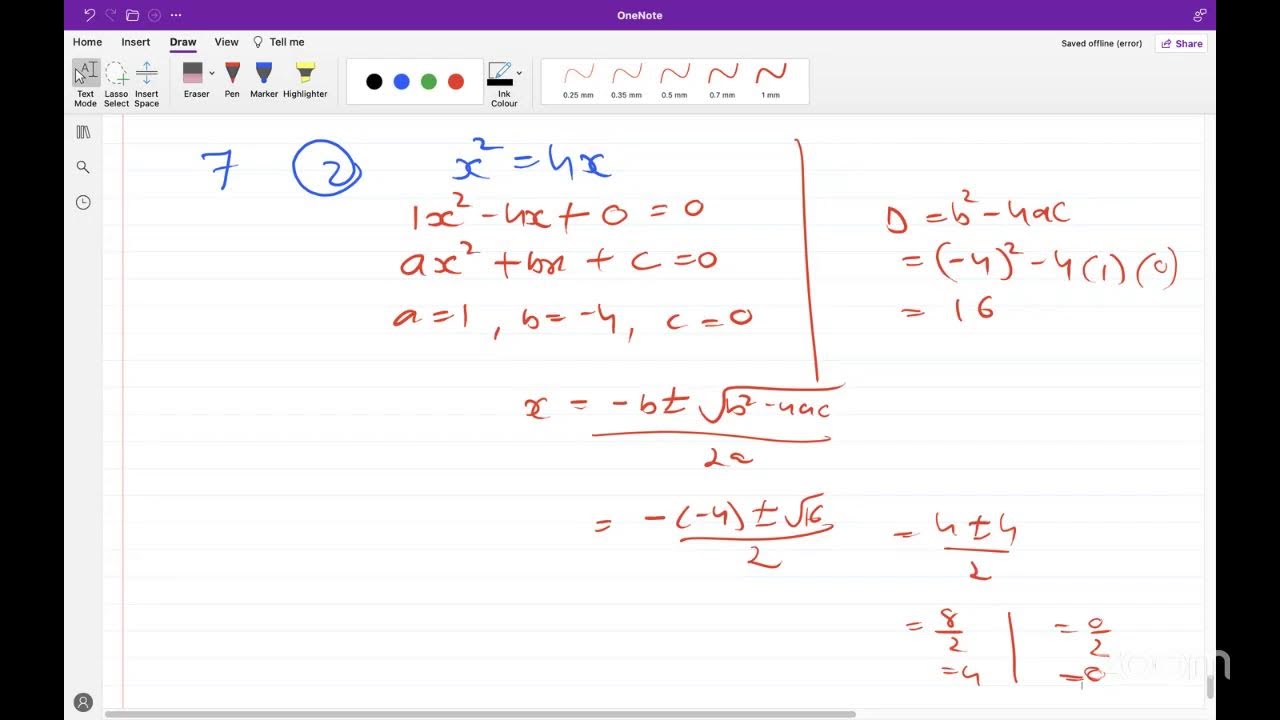 OneNote
Home Insert Draw View Tell me
Saved offline (error) Share
Text Mode
Lasso Select
Insert Space
Eraser
Pen
Marker
Highlighter
Ink Colour
0.25 mm 0.35 mm 0.5 mm 0.7 mm 1 mm
7 ② x² = 4x
1x² - 4x + 0 = 0
ax² + bx + c = 0
a = 1, b = -4, c = 0
D = b² - 4ac
= (-4)² - 4(1)(0)
= 16
x = (-b ± √(b² - 4ac))/2a
= (-(-4) ± √16)/2 = (4 ± 4)/2
= 8/2 | = 0/2
= 4 | = 0
zoom